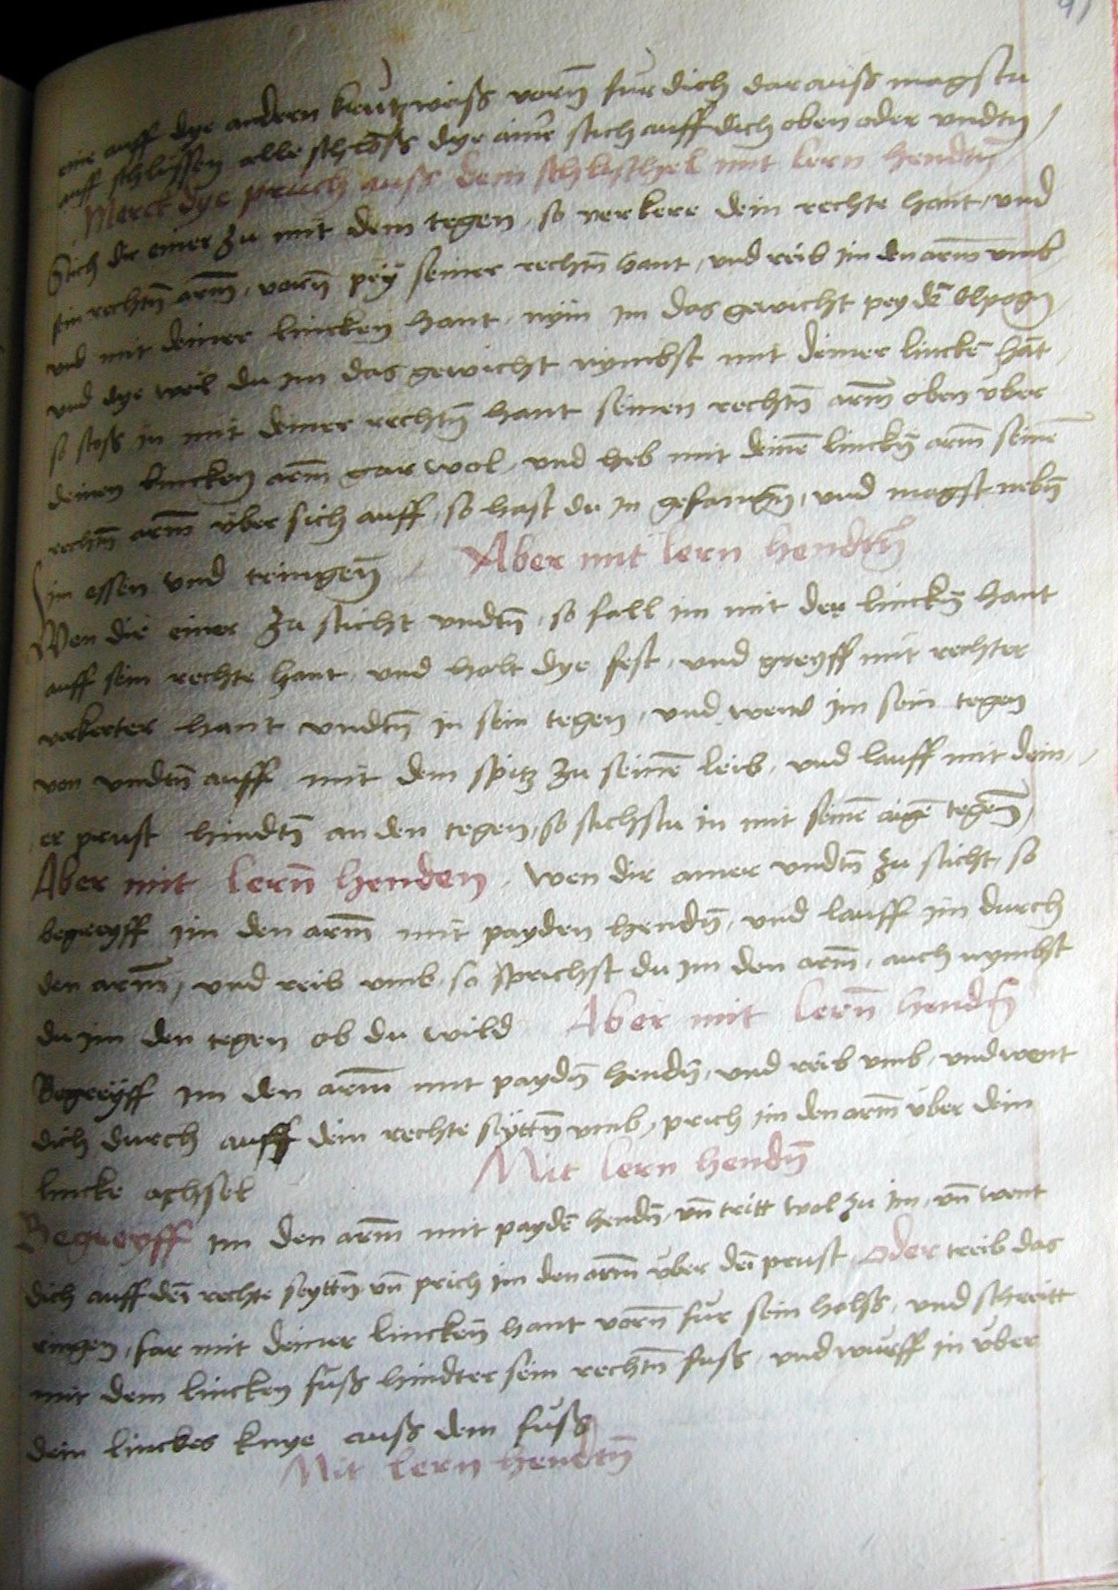 eine auff dye andern kreutzweiß vorn̄ fur dich darauß magstu
auff schlissen alle schloß dye ainer stich auff dich oben oder undtn̄
Merck dye pruch auß dem schlisthel mit lern hendtn̄
Stich dir einer zu mit dem tegen, so verkere dein rechte hant, und
sein rechtn̄ arm̄, vorn̄ pey seiner rechtn̄ hant, und reib im den arm̄ umb
und mit deiner lincken hant, nym im das gewicht pey dē Elpogn̄
und dye weil du im das gewicht nymbst mit deiner linckē hāt,
so stoß in mit deiner rechtn̄ hant seinen rechtn̄ arm̄ oben uber
deinen lincken arm̄ gar wol, und heb mit deinē linckn̄ arm̄ seinē
rechtn̄ arm̄ uber sich auff, so hast du in gefangn̄, und magst nebn̄
im essen und tringen̄ / Aber mit lern hendtn̄
Wen die einer zu sticht undtn̄, so fall im mit der linckn̄ hant
auff sein rechte hant, und halt dye fest, und greyff mit rechter
verkerter hant undtn̄ in sein tegen, und wend im sein tegen
von undtn̄ auff mit dem spitz zu seinē leib, und lauff mit dein-
er prust hindtn̄ an den tegen, so stichstu in mit seinē aigē tegen̄
Aber mit lern̄ henden, Wen dir ainer undtn̄ zu sticht, so
begreyff im den arm̄ mit payden hendn̄, und lauff im durch
den arm̄, und reib umb so prichst du im den arm̄, auch nymbst
du im den tegen ob du wild Aber mit lern̄ hendn̄
Begreyff im den arm̄ mit paydn̄ hendn̄, und reib umb, und went
dich durch auff dein rechte seyttn̄ umb, prich im den arm̄ uber dein
lincke achsel Mit lern hendn̄
Begreyff im den arm̄ mit paydē hendn̄, un̄ tritt wol zu im, un̄ went
dich auff dei rechte seyttn̄ un̄ prich im den arm̄ uber dei prust, oder treib das
ringen, far mit deiner lincken̄ hant vorn̄ fur sein halß, und schreitt
mit dem lincken fuß hindter sein rechtn̄ fuß, und wurff in uber
dein linckes knye auß dem fuß
Mit lern hendtn̄